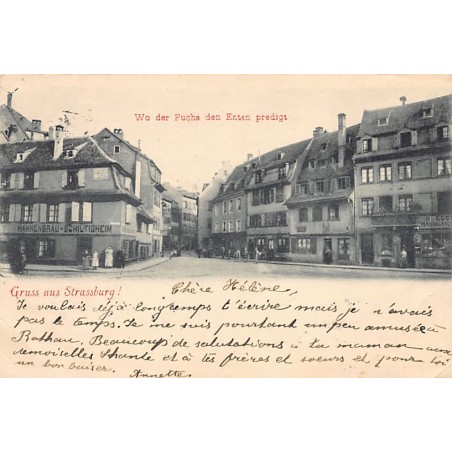 Wo der Fuchs den Enten predigt
HANNENBRÄU-SCHILTIGHEIM
Gruss aus Strassburg!
Chère Hélène,
Je voulais déjà longtemps t'écrire mais je n'avais
pas le temps. Je me suis pourtant un peu amusée
Rothau. Beaucoup de salutations à ta maman aux
demoiselles Shante et à tes frères et soeurs et pour toi
un bon baiser.
Annette.